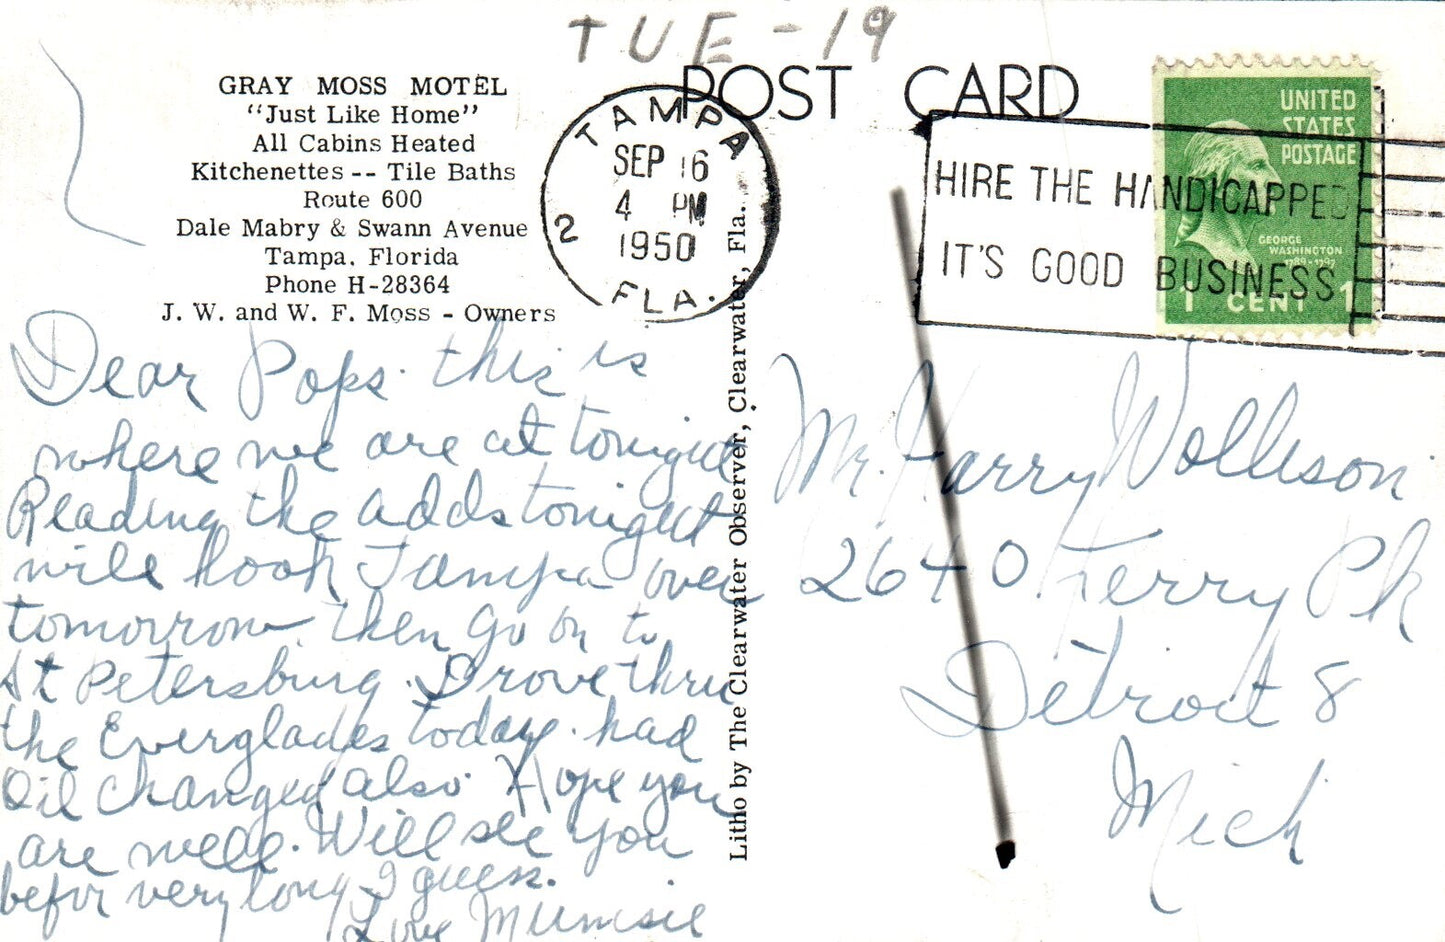 TUE - 19
POST CARD
GRAY MOSS MOTEL
"Just Like Home"
All Cabins Heated
Kitchenettes -- Tile Baths
Route 600
Dale Mabry & Swann Avenue
Tampa, Florida
Phone H-28364
J. W. and W. F. Moss - Owners
TAMPA
SEP 16
4 PM
1950
2
FLA.
HIRE THE HANDICAPPED
IT'S GOOD BUSINESS
UNITED
STATES
POSTAGE
GEORGE
WASHINGTON
1789-1797
1 CENT 1
Dear Pops. this is
where we are at tonight
Reading the adds tonight
will look Tampa over
tomorrow. then go on to
St Petersburg. Drove thru
the Everglades today. had
Oil changed also. Hope you
are well. Will see you
befor very long I guess.
Love Mumsie
Litho by The Clearwater Observer, Clearwater, Fla.
Mr. Harry Wollison
2640 Ferry Pk
Detroit 8
Mich